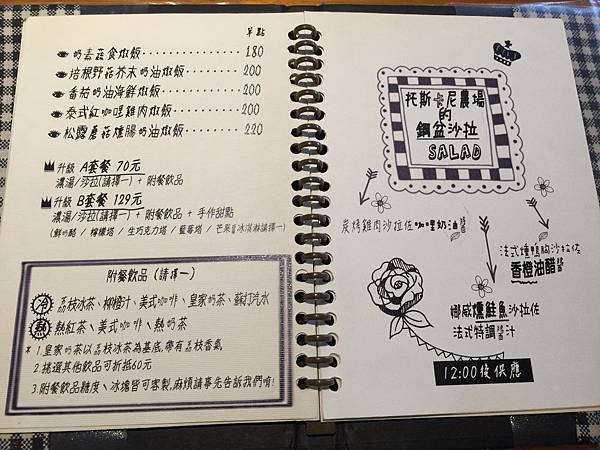 單點
奶素蔬食炊飯 180
培根野菇芥末奶油炊飯 200
番茄奶油海鮮炊飯 200
泰式紅咖哩雞肉炊飯 200
松露蘑菇燻腸奶油炊飯 220
升級 A套餐 70元
濃湯/沙拉(請擇一) + 附餐飲品
升級 B套餐 129元
濃湯/沙拉(請擇一) + 附餐飲品 + 手作甜點
(鮮奶酪 / 檸檬塔 / 生巧克力塔 / 藍莓塔 / 芒果冰淇淋請擇一)
附餐飲品 (請擇一)
冷 荔枝冰茶、柳橙汁、美式咖啡、皇家奶茶、蘇打汽水
熱 熱紅茶、美式咖啡、熱奶茶
* 1.皇家奶茶以荔枝冰茶為基底,帶有荔枝香氣
2.換選其他飲品可折抵60元
3.附餐飲品糖度、冰塊皆可客製,麻煩請事先告訴我們唷!
托斯卡尼農場
的
鋼盆沙拉
SALAD
炭烤雞肉沙拉佐咖哩奶油醬
法式燻鴨胸沙拉佐
香橙油醋醬
挪威燻鮭魚沙拉佐
法式特調醬汁
12:00後供應